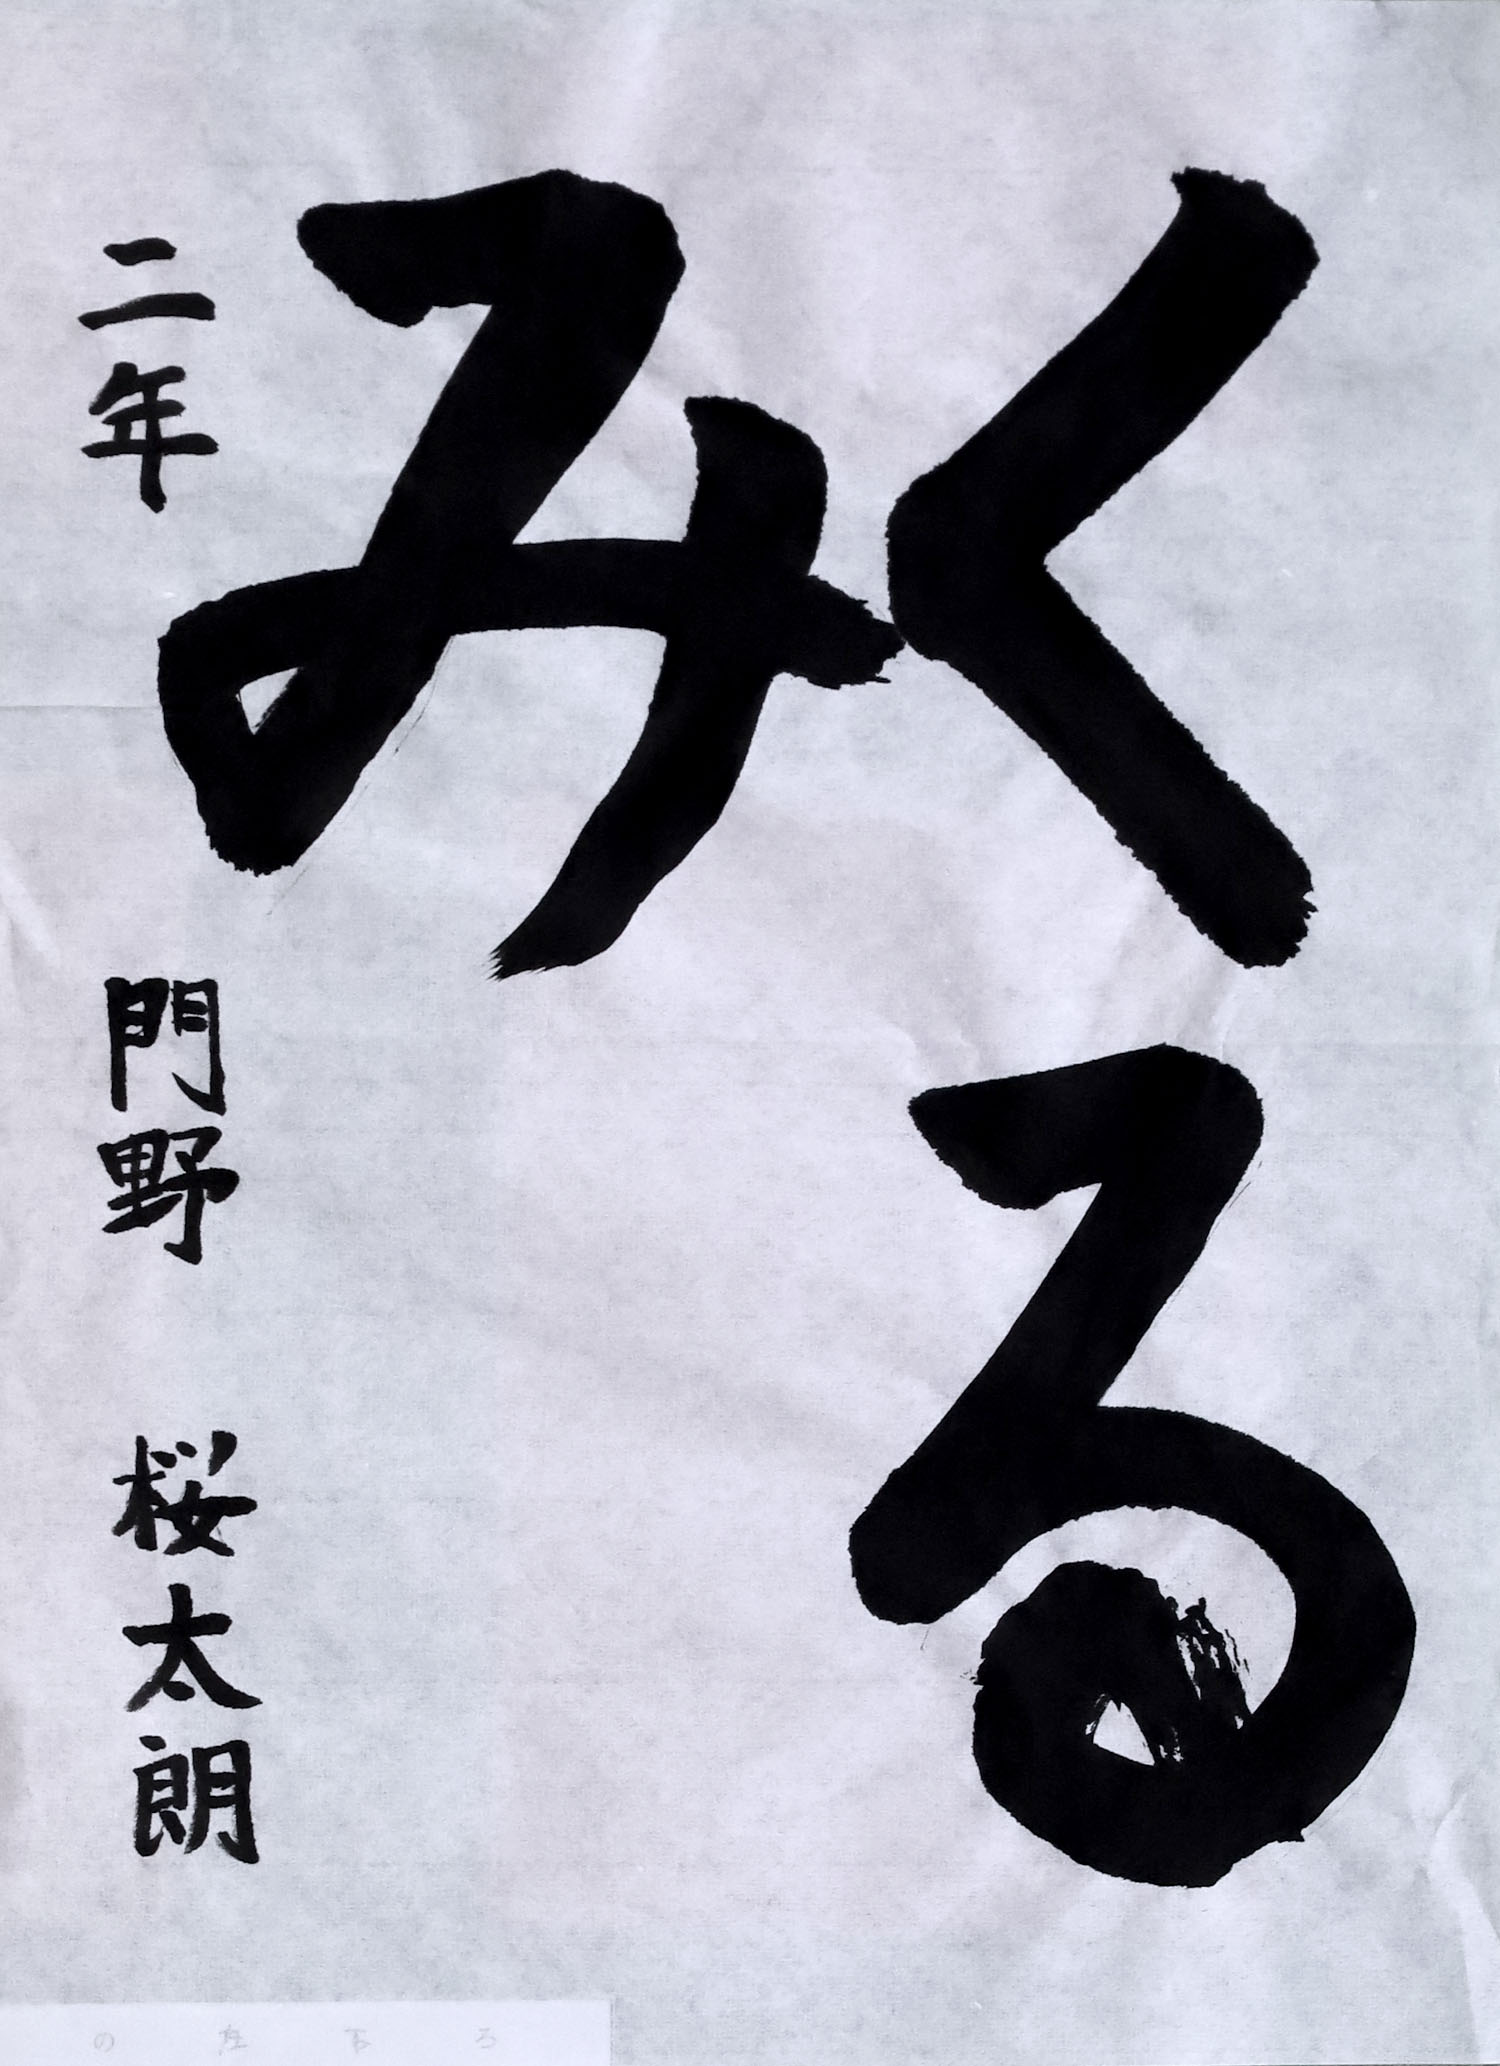 くる
み
二年 門野 桜太朗